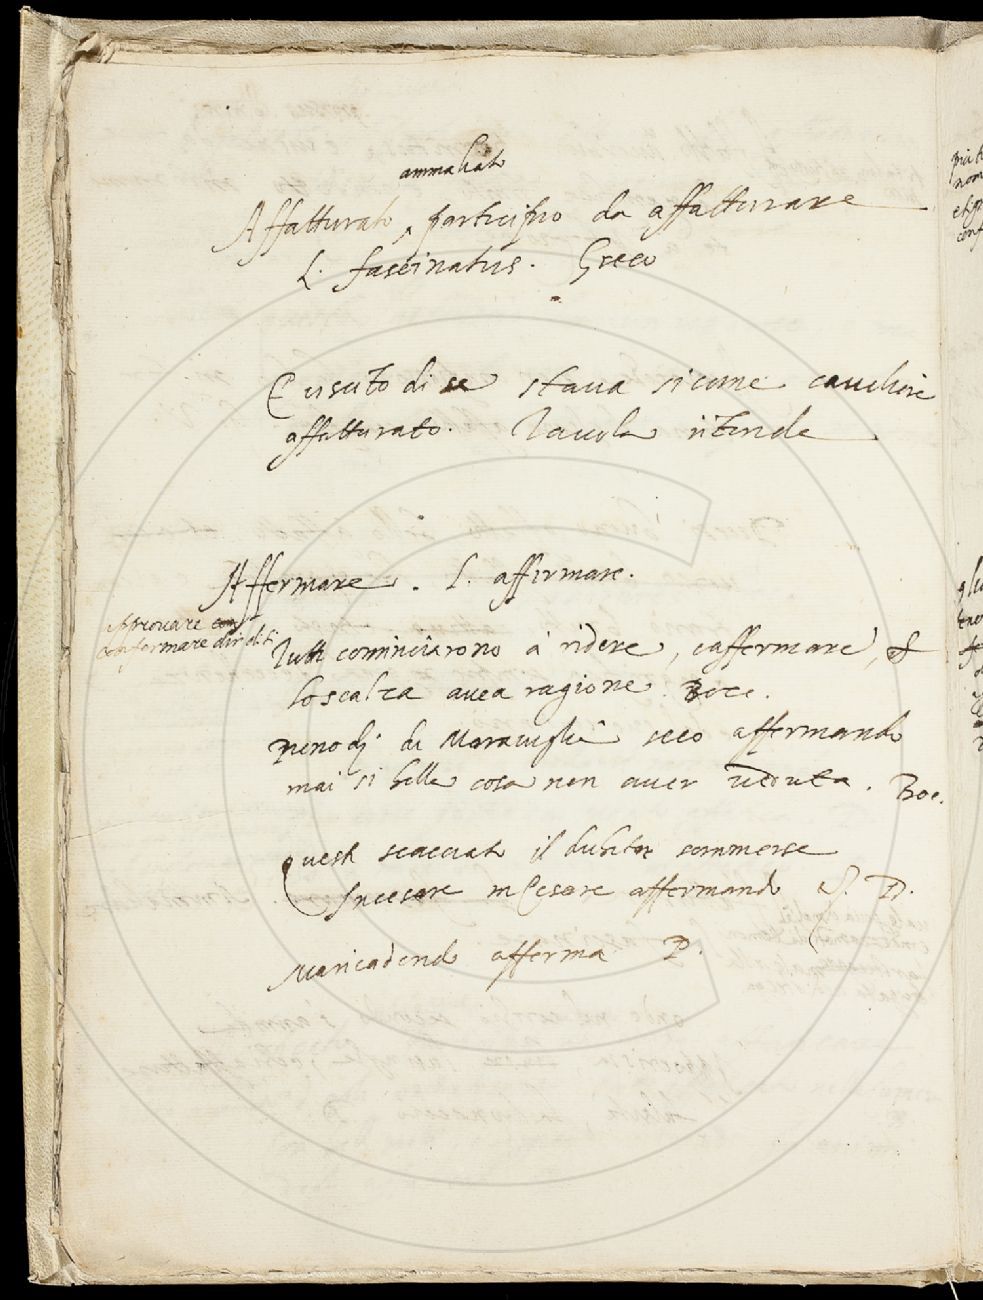 ammaliato
Affatturato, participio da affatturare
L. fascinatus. Greco
E usuto di se staua sicome caualiere
affatturato. Tauola ritonda
Affermare. L. affirmare.
Approuare con
confermare dir di si
Tutti cominciarono à ridere, e affermare, che
lo scalza auea ragione. Bocc.
pieno di di Marauiglia seco affermando
mai si bella cosa non auer ueduta. Boc.
Questi scacciato il dubitar sommerse
In cesare affermando D.
Ma ricadendo afferma P.